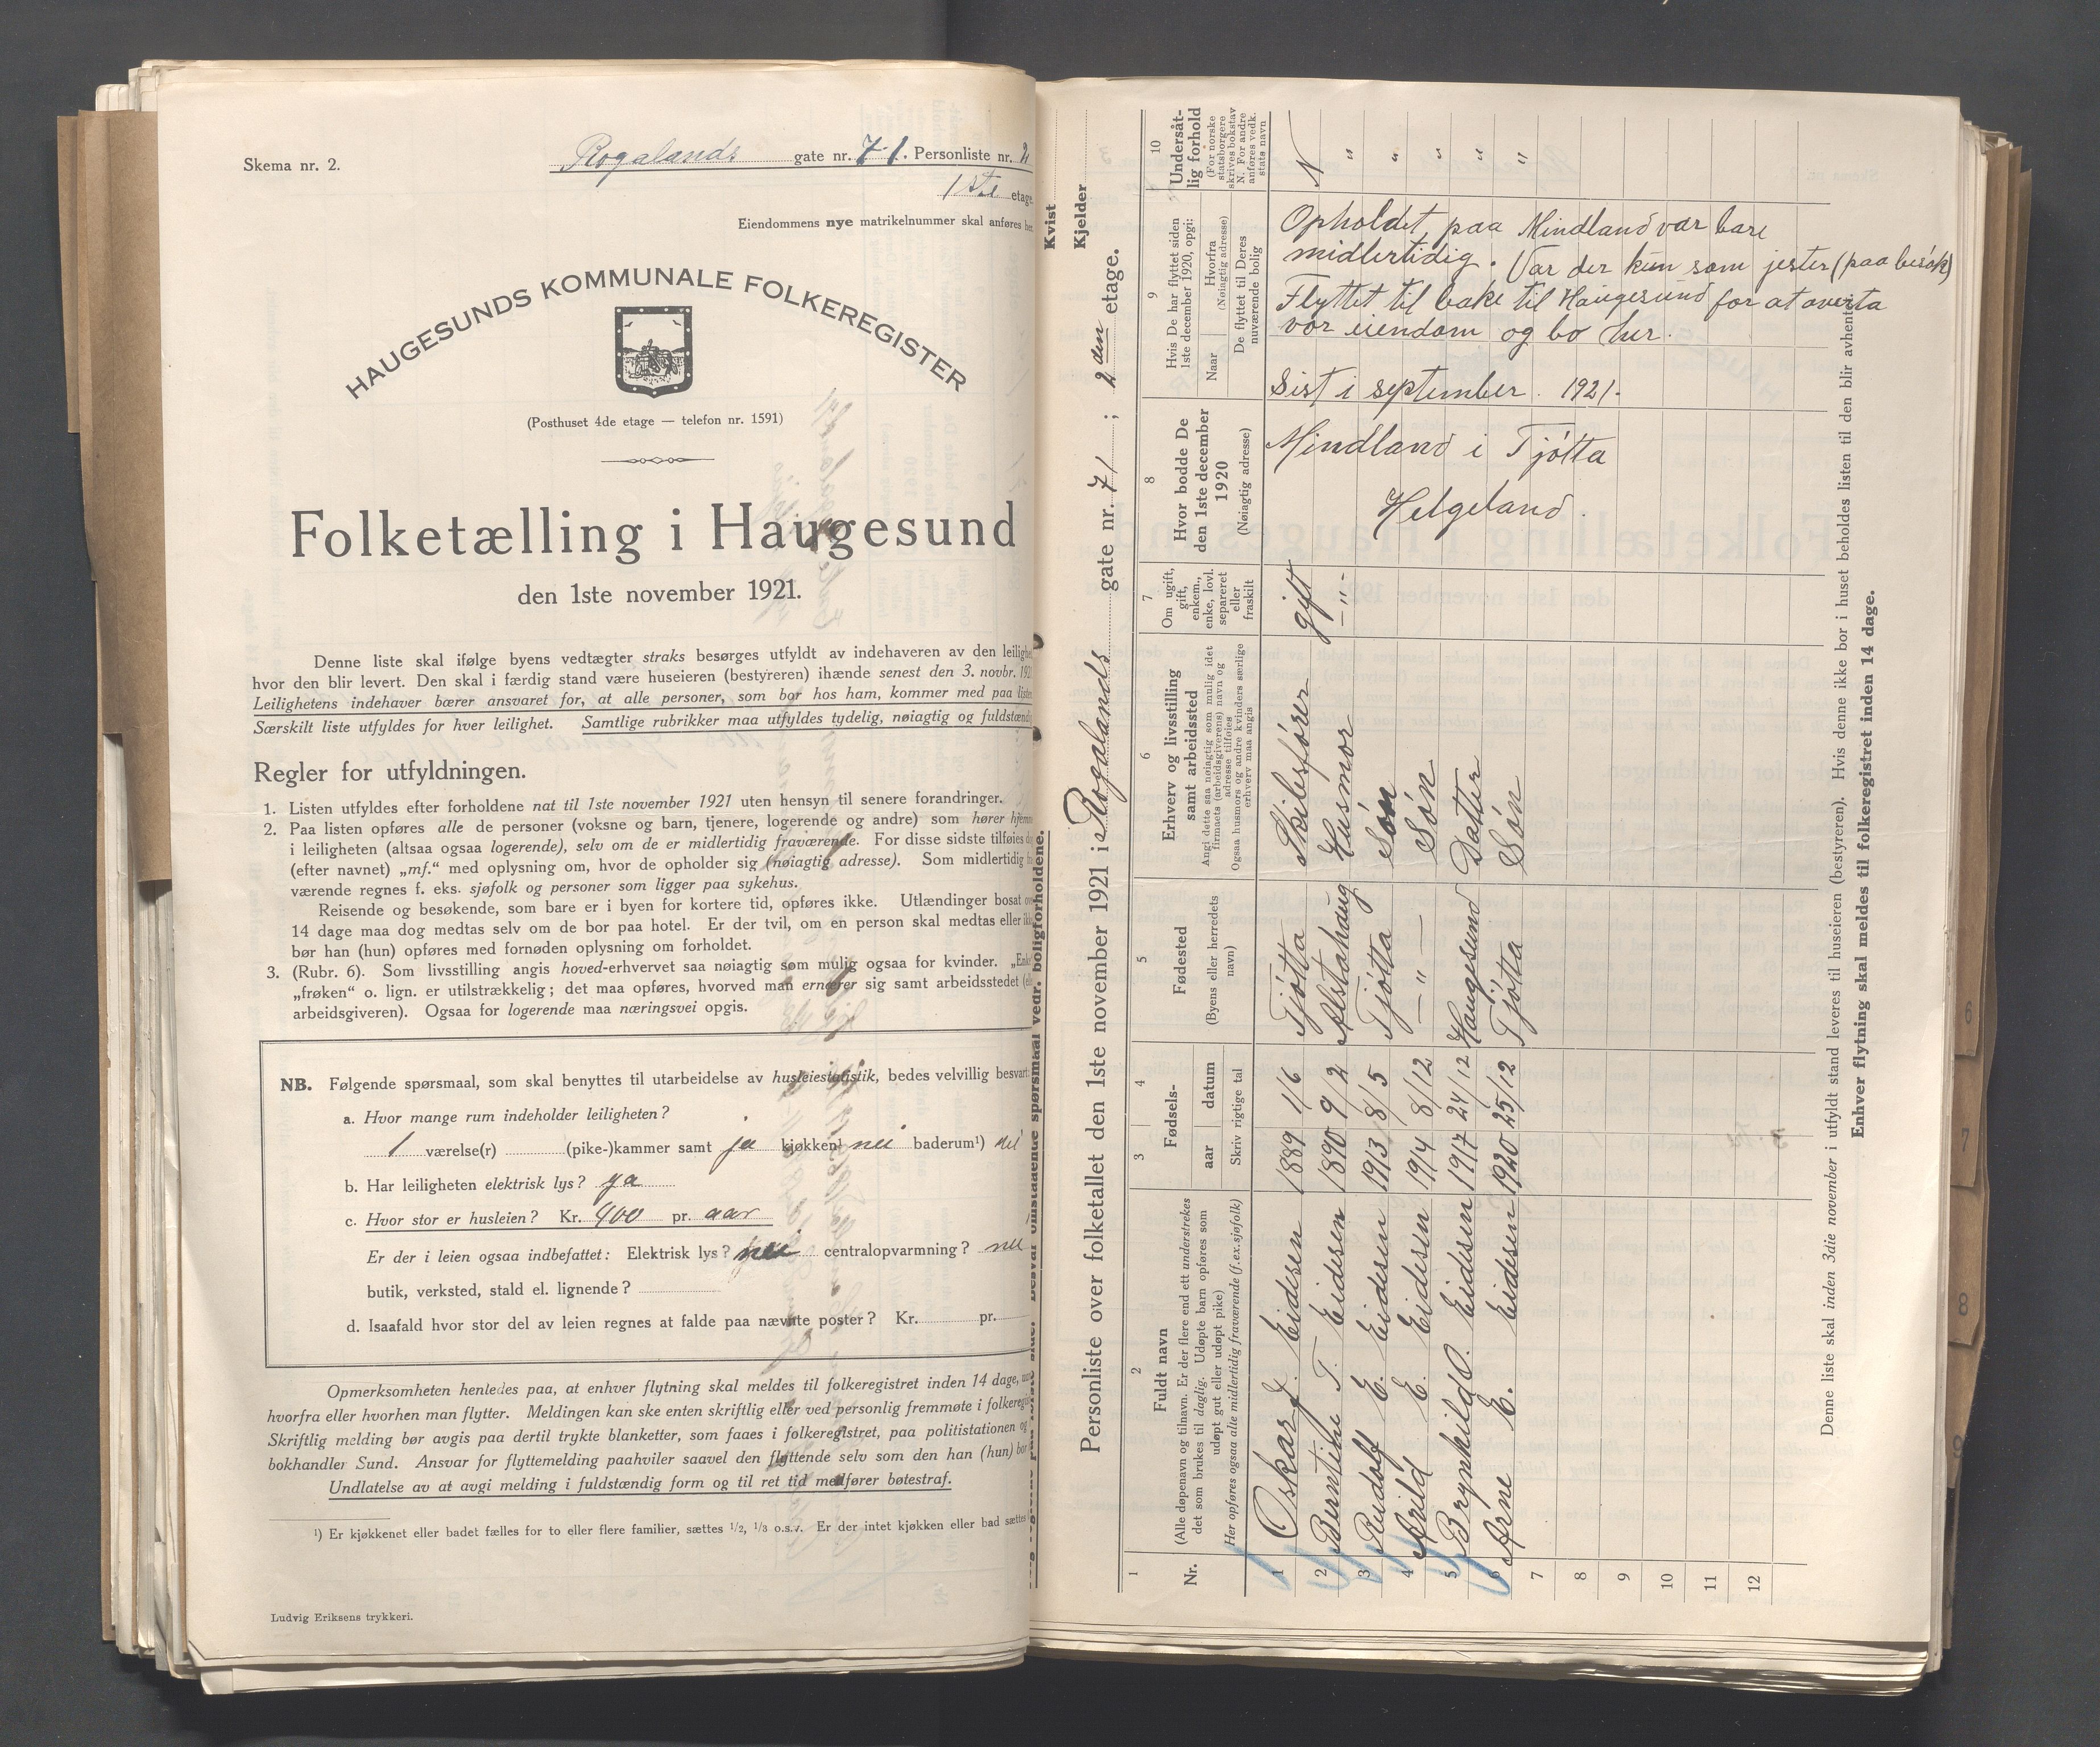 Skema nr. 2.
Rogalands gate nr. 71. Personliste nr. 2
1ste etage.
Eiendommens nye matrikelnummer skal anføres her.
HAUGESUNDS KOMMUNALE FOLKEREGISTER
(Posthuset 4de etage — telefon nr. 1591)
Folketælling i Haugesund
den 1ste november 1921.
Denne liste skal ifølge byens vedtægter straks besørges utfyldt av indehaveren av den leilighet
hvor den blir levert. Den skal i færdig stand være huseieren (bestyreren) ihænde senest den 3. novbr. 1921
Leilighetens indehaver bærer ansvaret for, at alle personer, som bor hos ham, kommer med paa listen
Særskilt liste utfyldes for hver leilighet. Samtlige rubrikker maa utfyldes tydelig, nøiagtig og fuldstændig
Regler for utfyldningen.
1. Listen utfyldes efter forholdene nat til 1ste november 1921 uten hensyn til senere forandringer.
2. Paa listen opføres alle de personer (voksne og barn, tjenere, logerende og andre) som hører hjemme
i leiligheten (altsaa ogsaa logerende), selv om de er midlertidig fraværende. For disse sidste tilføies
(efter navnet) „mf.“ med oplysning om, hvor de opholder sig (nøiagtig adresse). Som midlertidig
værende regnes f. eks. sjøfolk og personer som ligger paa sykehus.
Reisende og besøkende, som bare er i byen for kortere tid, opføres ikke. Utlændinger bosat over
14 dage maa dog medtas selv om de bor paa hotel. Er der tvil, om en person skal medtas eller ikke
bør han (hun) opføres med fornøden oplysning om forholdet.
3. (Rubr. 6). Som livsstilling angis hoved-erhvervet saa nøiagtig som mulig ogsaa for kvinder. „Enke“
„frøken“ o. lign. er utilstrækkelig; det maa opføres, hvorved man ernærer sig samt arbeidsstedet
arbeidsgiveren). Ogsaa for logerende maa næringsvei opgis.
NB. Følgende spørsmaal, som skal benyttes til utarbeidelse av husleiestatistik, bedes velvillig besvart:
a. Hvor mange rum indeholder leiligheten?
1 værelse(r) (pike-)kammer samt ja kjøkken¹ nei baderum¹) nei
b. Har leiligheten elektrisk lys? ja
c. Hvor stor er husleien? Kr. 400 pr. aar
Er der i leien ogsaa indbefattet: Elektrisk lys? nei centralopvarmning? nei
butik, verksted, stald el. lignende?
d. Isaafald hvor stor del av leien regnes at falde paa nævnte poster? Kr. pr.
Opmerksomheten henledes paa, at enhver flytning skal meldes til folkeregistret inden 14 dage,
hvorfra eller hvorhen man flytter. Meldingen kan ske enten skriftlig eller ved personlig fremmøte i folkeregistret
Skriftlig melding bør avgis paa dertil trykte blanketter, som faaes i folkeregistret, paa politistationen og
bokhandler Sund. Ansvar for flyttemelding paahviler saavel den flyttende selv som den han (hun) bor
Undlatelse av at avgi melding i fuldstændig form og til ret tid medfører bøtestraf.
¹) Er kjøkkenet eller badet fælles for to eller flere familier, sættes 1/2, 1/3 o.s.v. Er der intet kjøkken eller bad sættes
Ludvig Eriksens trykkeri.
Kvist
Kjelder
vedr. boligforholdene.
Personliste over folketallet den 1ste november 1921 i Rogalands gate nr. 71; 2den etage.
1 2 3 4 5 6 7 8 9 10
Nr.
Fuldt navn
(Alle døpenavn og tilnavn. Er der flere end ett understrekes
det som brukes til daglig. Udøpte barn opføres som
udøpt gut eller udøpt pike)
Her opføres ogsaa alle midlertidig fraværende (f.ex. sjøfolk)
Fødsels-
aar datum
Skriv rigtige tal
Fødested
(Byens eller herredets
navn)
Erhverv og livsstilling
samt arbeidssted
Angi dette saa nøiagtig som mulig idet
firmaets (arbeidsgiverens) navn og
adresse tilføies
Ogsaa husmors og andre kvinders særlige
erhverv maa angis
Om ugift,
gift,
enkem.,
enke, lovl.
separeret
eller
fraskilt
Hvor bodde De
den 1ste december
1920
(Nøiagtig adresse)
Hvis De har flyttet siden
1ste december 1920, opgi:
Naar Hvorfra
(Nøiagtig adresse)
De flyttet til Deres
nuværende bolig
Undersåt-
lig forhold
(For norske
statsborgere
skrives bokstav
N. For andre
anføres vedk.
stats navn
1 Oskar J. Eidisen 1889 1/6 Tjøtta Skibsfører gift N
2 Berntine T. Eidisen 1890 9/2 Alstahaug Husmor —"— "
3 Reidolf E. Eidisen 1913 8/5 Tjøtta Søn "
4 Arild E. Eidisen 1914 8/12 —"— Søn "
5 Brynhild O. Eidisen 1917 24/12 Haugesund Datter "
6 Arne E. Eidisen 1920 25/12 Tjøtta Søn "
7
8
9
10
11
12
Mindland i Tjøtta
Helgeland.
Sist i september. 1921.
Opholdet paa Mindland var bare
midlertidig. Var der kun som jester (paa besøk)
Flyttet til bake til Haugesund for at overta
vor eiendom og bo her.
Denne liste skal inden 3die november i utfyldt stand leveres til huseieren (bestyreren). Hvis denne ikke bor i huset beholdes listen til den blir avhentet.
Enhver flytning skal meldes til folkeregistret inden 14 dage.
6
7
8
9